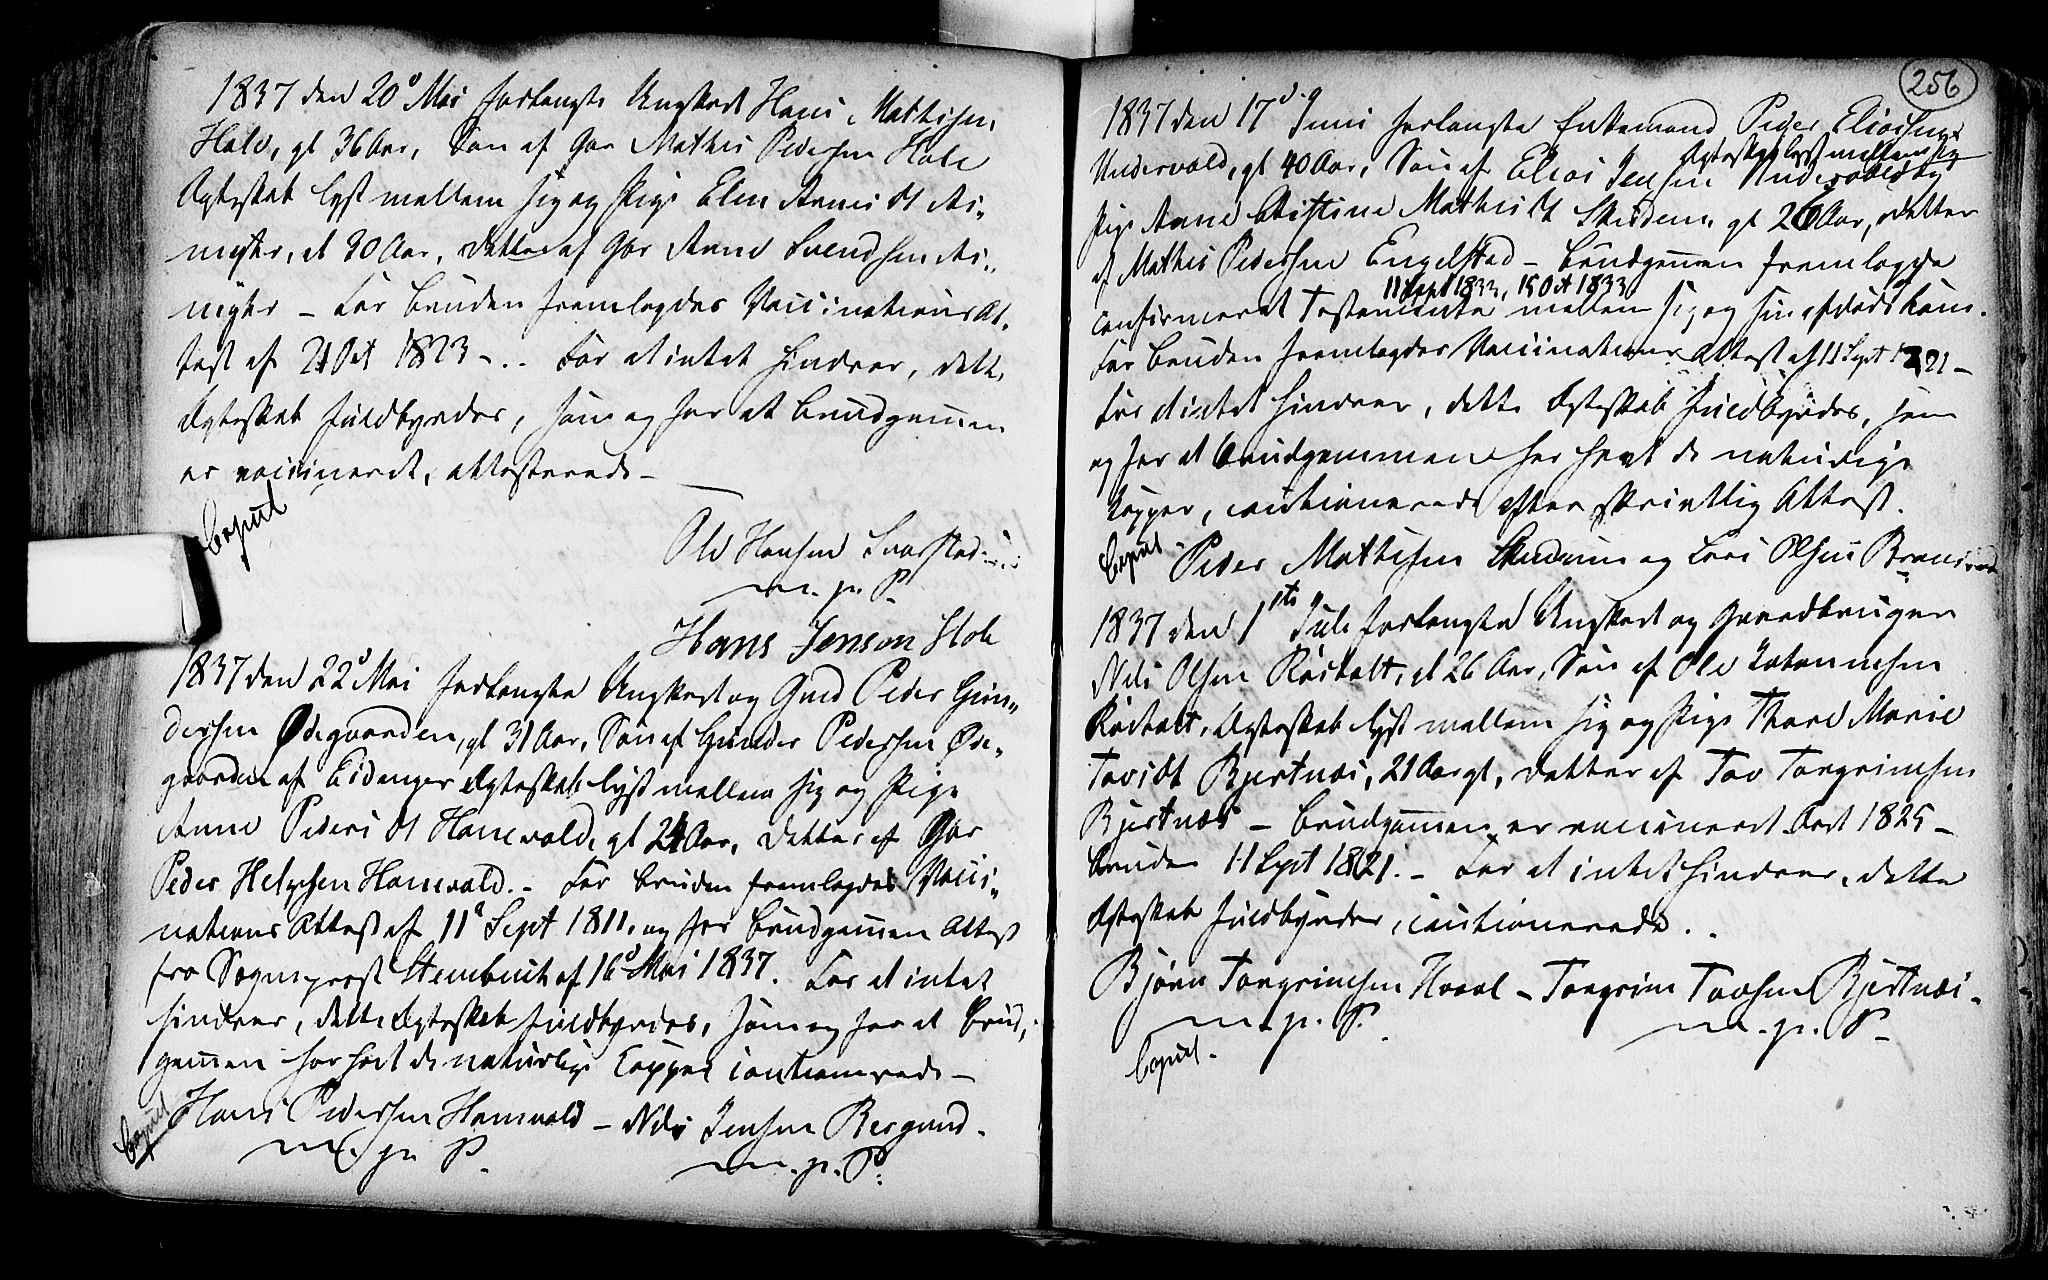 1837 den 20d Mai forlangte Ungkarl Hans Mathisen
Hole, gl 36 Aar, Søn af Gdr Mathis Pedersen Hole
Ægteskab lyst mellem sig og Pige Elen Arnisdt
gl 30 Aar, Datter af Gdr Arne Svendsen
– For Bruden fremlagdes Vaccinations At-
test af 21 Oct 1823 –. For at intet hindrer, dette
Ægteskab fuldbyrdes, som og for at Brudgommen
er vaccineret, attesterede –
Copul
Ole Hansen
m. p. P.
Hans Jenson Hole
1837 den 22d Mai forlangte Ungkarl og Gmd Peder Gun„
dersen Ødegaarden, gl 31 Aar, Søn af Gunder Pedersen Øde-
gaarden af Eidanger Ægteskab lyst mellem sig og Pige
Anne Pedersdt Hanevold, gl 24 Aar, Datter af Gdr
Peder Helgesen Hanevald. – For Bruden fremlagdes Vacci„
nations Attest af 11d Sept 1811, og for Brudgommen Attest
fra Sogneprest Steenbuch af 16d Mai 1837. For at intet
hindrer, dette Ægteskab fuldbyrdes, som og for at Brud„
gommen har havt de naturlige Kopper cautionerede –
Copul
Hans Pedersen Hanevald – Nils Jensen Bergand.
m. p. P. m. p. P.
256
1837 den 17d Juni forlangte Enkemand Peder Eliasen
Undersvald, gl 40 Aar, Søn af Elias Jensen Ægteskab lyst mellem sig og
Pige Anne Kistine Mathisdt gl 26 Aar, Datter
af Mathis Pedersen Engelstad – Brudgommen fremlagde
11 Sept 1833, 15 Oct 1833
confirmeret Testamente mellem sig og sin afdøde Kone.
For Bruden fremlagdes Vaccinations Attest af 11 Sept 1821 –
For at intet hindrer, dette Ægteskab fuldbyrdes, som
og for at Brudgommen har havt de naturlige
Kopper, cautionerede efter skriftlig Attest.
Copul. Peder Mathisen og Lars Olsen
1837 den 1ste Juli forlangte Ungkarl og Gaardbruger
Nils Olsen Røstalt, gl 26 Aar, Søn af Ole Johannesen
Røstalt, Ægteskab lyst mellem sig og Pige Thore Marie
Tovsdt Bjertnæs, 21 Aar gl, Datter af Tov Torgrimsen
Bjertnæs – Brudgommen er vaccineret 1825 –
Bruden 11 Sept 1821. – For at intet hindrer, dette
Ægteskab fuldbyrdes, cautionerede.
Bjørn Torgrimsen Hvaal – Torgrim Tovsen Bjertnæs.
m. p. P. m. p. P.
Copul.